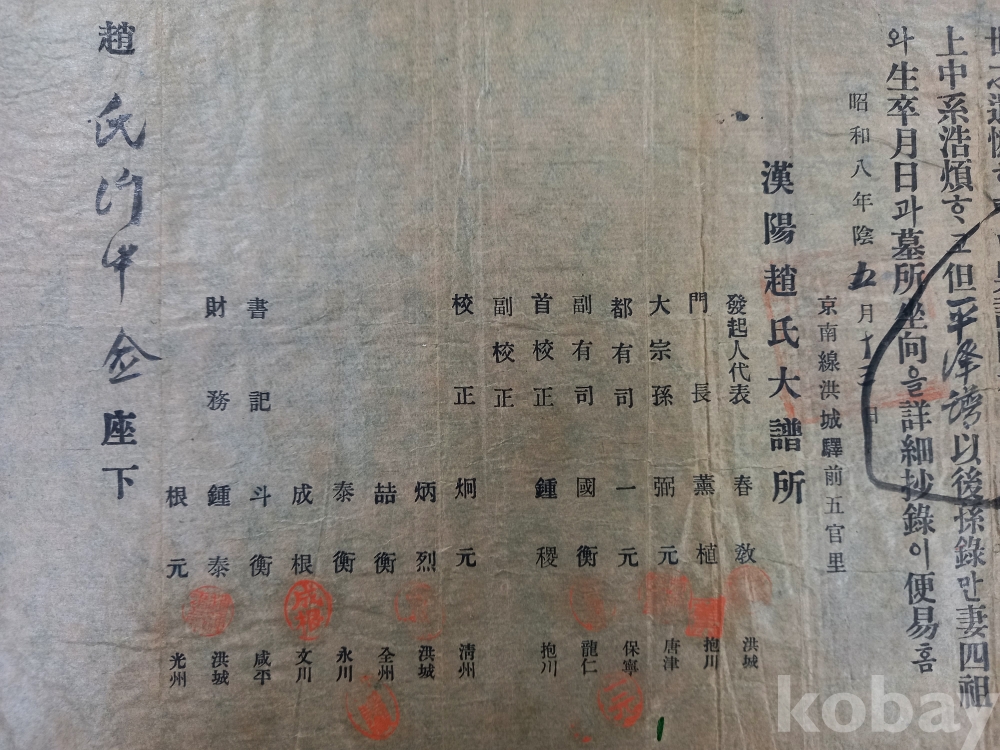 上中系浩煩ᄒᆞ고但平澤譜以後孫錄만妻四祖
와生卒月日과墓所坐向을詳細抄錄이便易홈
昭和八年陰五月十三日
京南線洪城驛前五官里
漢陽趙氏大譜所
發起人代表 春敎 洪城
門長 薰植 抱川
大宗孫 弼元 唐津
都有司 一元 保寧
副有司 國衡 龍仁
首校正 鍾稷 抱川
副校正
校正 炯元 清州
炳烈 洪城
喆衡 全州
泰衡 永川
成根 文川
書記 斗衡 咸平
財務 鍾泰 洪城
根元 光州
趙氏門中 座下
kobay